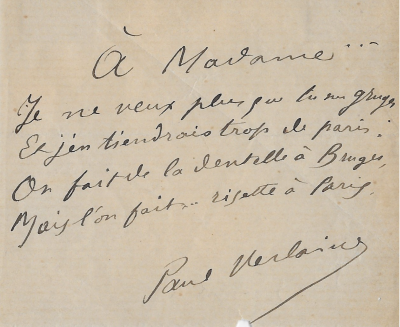 À Madame...
Je ne veux plus que tu me gruges
Et j'en tiendrais trop de paris :
On fait de la dentelle à Bruges,
Mais l'on fait... risette à Paris.
Paul Verlaine